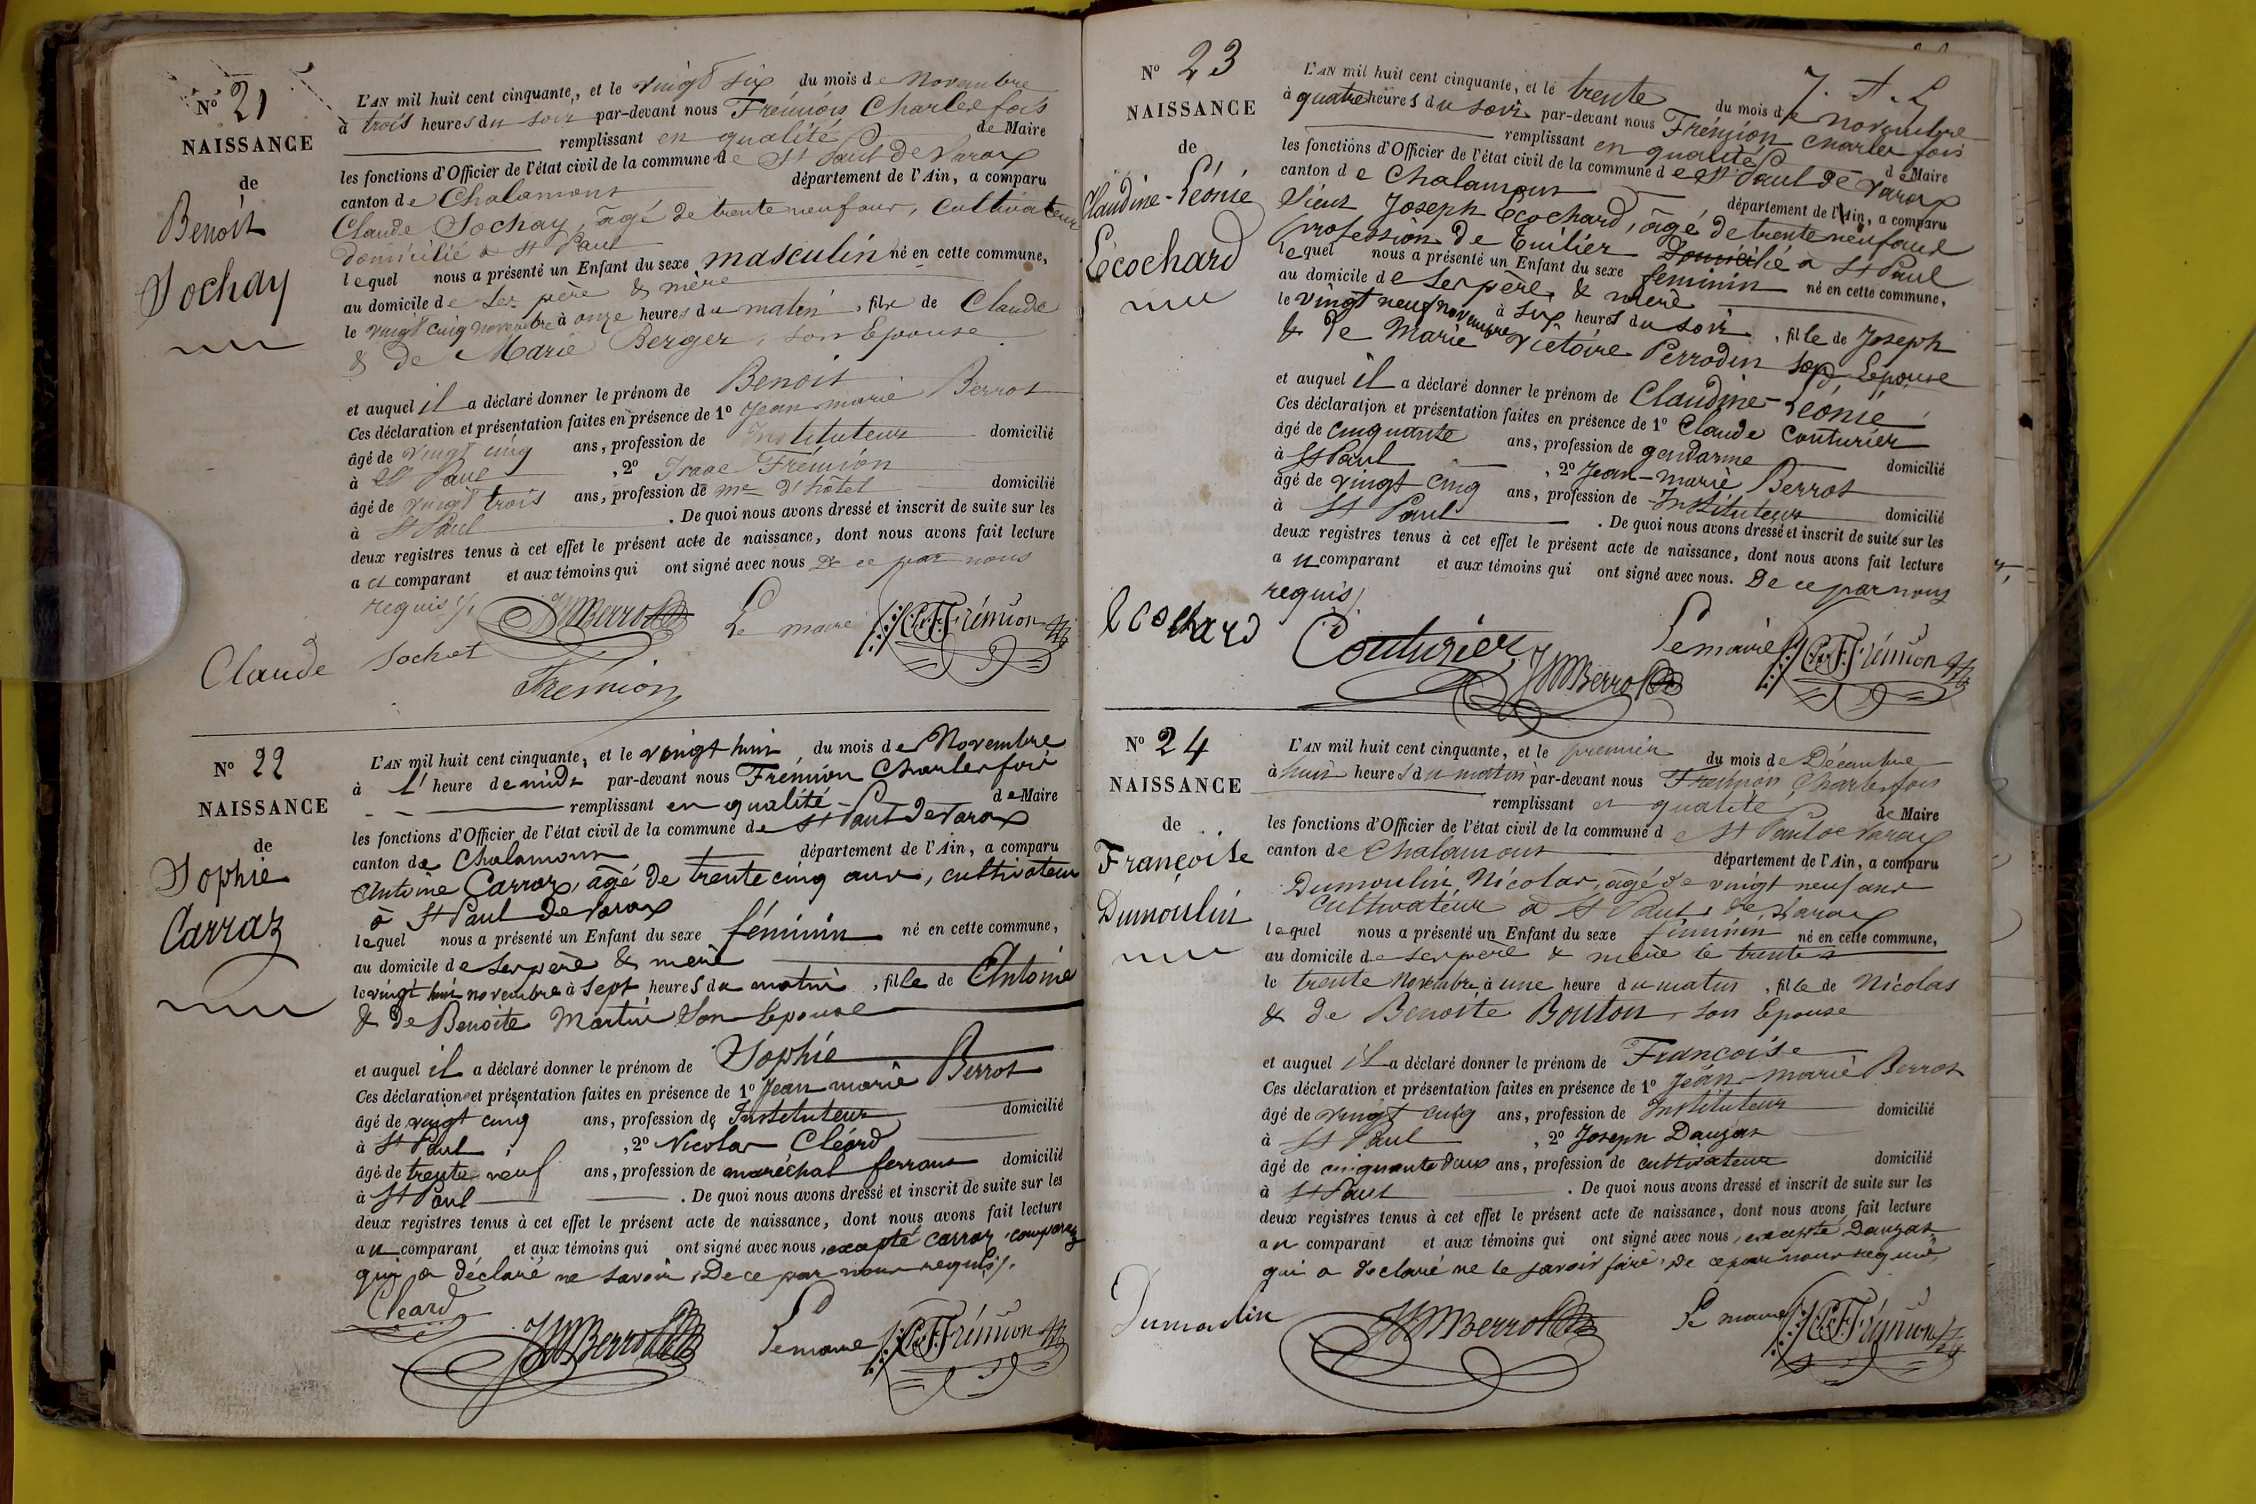 N° 21
NAISSANCE
de
Benoit
Sochay
L'AN mil huit cent cinquante, et le vingt six du mois de Novembre
à trois heures du soir par-devant nous Frémion Charles fois
remplissant en qualité de Maire
les fonctions d'Officier de l'état civil de la commune de St Paul de Varax
canton de Chalamont département de l'Ain, a comparu
Claude Sochay, âgé de trente neuf ans, Cultivateur
domicilié à St Paul
lequel nous a présenté un Enfant du sexe masculin né en cette commune,
au domicile de ses père & mère
le vingt cinq novembre à onze heures du matin, fils de Claude
& de Marie Berger, son Epouse
et auquel il a déclaré donner le prénom de Benoit
Ces déclaration et présentation faites en présence de 1° Jean marie Berrot
âgé de vingt cinq ans, profession de Instituteur domicilié
à St Paul, 2° Isaac Frémion
âgé de vingt trois ans, profession de me d'hôtel domicilié
à St Paul. De quoi nous avons dressé et inscrit de suite sur les
deux registres tenus à cet effet le présent acte de naissance, dont nous avons fait lecture
au comparant et aux témoins qui ont signé avec nous De ce par nous
requis /.
JM Berrot Le maire Ch. F. Frémion
Claude Sochet
Frémion
N° 22
NAISSANCE
de
Sophie
Carraz
L'AN mil huit cent cinquante, et le vingt huit du mois de Novembre
à l'heure de midi par-devant nous Frémion Charles fois
remplissant en qualité de Maire
les fonctions d'Officier de l'état civil de la commune de St Paul de Varax
canton de Chalamont département de l'Ain, a comparu
Antoine Carraz, âgé de trente cinq ans, cultivateur
à St Paul de Varax
lequel nous a présenté un Enfant du sexe féminin né en cette commune,
au domicile de ses père & mère
le vingt huit novembre à sept heures du matin, fille de Antoine
& de Benoite Martin son Epouse
et auquel il a déclaré donner le prénom de Sophie
Ces déclaration et présentation faites en présence de 1° Jean marie Berrot
âgé de vingt cinq ans, profession de Instituteur domicilié
à St Paul, 2° Nicolas Cléard
âgé de trente neuf ans, profession de maréchal ferrant domicilié
à St Paul. De quoi nous avons dressé et inscrit de suite sur les
deux registres tenus à cet effet le présent acte de naissance, dont nous avons fait lecture
au comparant et aux témoins qui ont signé avec nous, excepté Carraz, comparant
qui a déclaré ne savoir, De ce par nous requis /.
Cleard
JM Berrot Le maire Ch. F. Frémion
N° 23
NAISSANCE
de
Claudine-Léonie
Ecochard
L'AN mil huit cent cinquante, et le trente du mois de novembre
à quatre heures du soir par-devant nous Frémion Charles fois
remplissant en qualité de Maire
les fonctions d'Officier de l'état civil de la commune de St Paul de Varax
canton de Chalamont département de l'Ain, a comparu
Sieur Joseph Ecochard, âgé de trente neuf ans
profession de Tuilier Domicilié à St Paul
lequel nous a présenté un Enfant du sexe feminin né en cette commune,
au domicile de ses père & mère
le vingt neuf novembre à six heures du soir, fille de Joseph
& de Marie Victoire Perrodin son Epouse
et auquel il a déclaré donner le prénom de Claudine-Léonie
Ces déclaration et présentation faites en présence de 1° Claude Couturier
âgé de cinquante ans, profession de gendarme domicilié
à St Paul, 2° Jean-marie Berrot
âgé de vingt cinq ans, profession de Instituteur domicilié
à St Paul. De quoi nous avons dressé et inscrit de suite sur les
deux registres tenus à cet effet le présent acte de naissance, dont nous avons fait lecture
au comparant et aux témoins qui ont signé avec nous. De ce par nous
requis /
Ecochard Couturier JM Berrot Le maire Ch. F. Frémion
N° 24
NAISSANCE
de
Françoise
Dumoulin
L'AN mil huit cent cinquante, et le premier du mois de Décembre
à huit heures du matin par-devant nous Frémion Charles fois
remplissant en qualité de Maire
les fonctions d'Officier de l'état civil de la commune de St Paul de Varax
canton de Chalamont département de l'Ain, a comparu
Dumoulin Nicolas, âgé de vingt neuf ans
cultivateur à St Paul de Varax
lequel nous a présenté un Enfant du sexe féminin né en cette commune,
au domicile de ses père & mère le trente
le trente Novembre à une heure du matin, fille de Nicolas
& de Benoite Bouton, son Epouse
et auquel il a déclaré donner le prénom de Françoise
Ces déclaration et présentation faites en présence de 1° Jean-marie Berrot
âgé de vingt cinq ans, profession de Instituteur domicilié
à St Paul, 2° Joseph Dauzat
âgé de cinquante deux ans, profession de cultivateur domicilié
à St Paul. De quoi nous avons dressé et inscrit de suite sur les
deux registres tenus à cet effet le présent acte de naissance, dont nous avons fait lecture
au comparant et aux témoins qui ont signé avec nous, excepté Dauzat
qui a déclaré ne le savoir faire, De ce par nous requis
Dumoulin JM Berrot Le maire Ch. F. Frémion